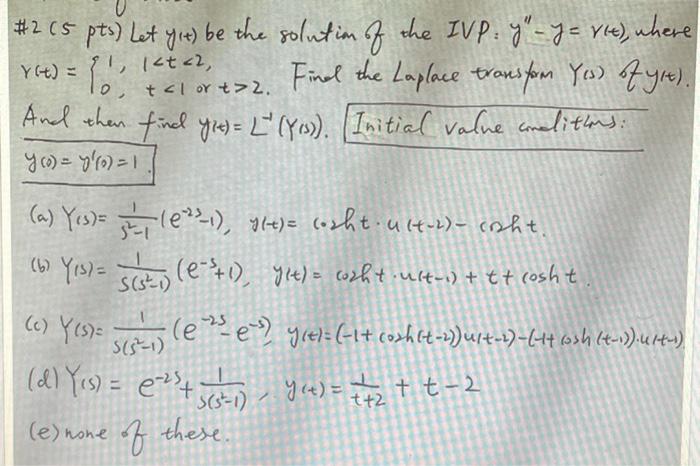 #2 (5 pts) Let y(t) be the solution of the IVP: y'' - y = r(t), where
r(t) = { 1, 1<t<2,
0, t<1 or t>2. Find the Laplace transform Y(s) of y(t).
And then find y(t) = L⁻¹(Y(s)). Initial value conditions:
y(0) = y'(0) = 1.
(a) Y(s) = 1/(s²-1) (e^(-2s)-1), y(t) = cosh t · u(t-2) - cosh t.
(b) Y(s) = 1/(s(s²-1)) (e^(-s)+1), y(t) = cosh t · u(t-1) + t + cosh t.
(c) Y(s) = 1/(s(s²-1)) (e^(-2s) - e^(-s)), y(t) = (-1 + cosh(t-2))u(t-2) - (-1 + cosh(t-1))·u(t-1)
(d) Y(s) = e^(-2s) + 1/(s(s²-1)), y(t) = 1/(t+2) + t - 2
(e) none of these.